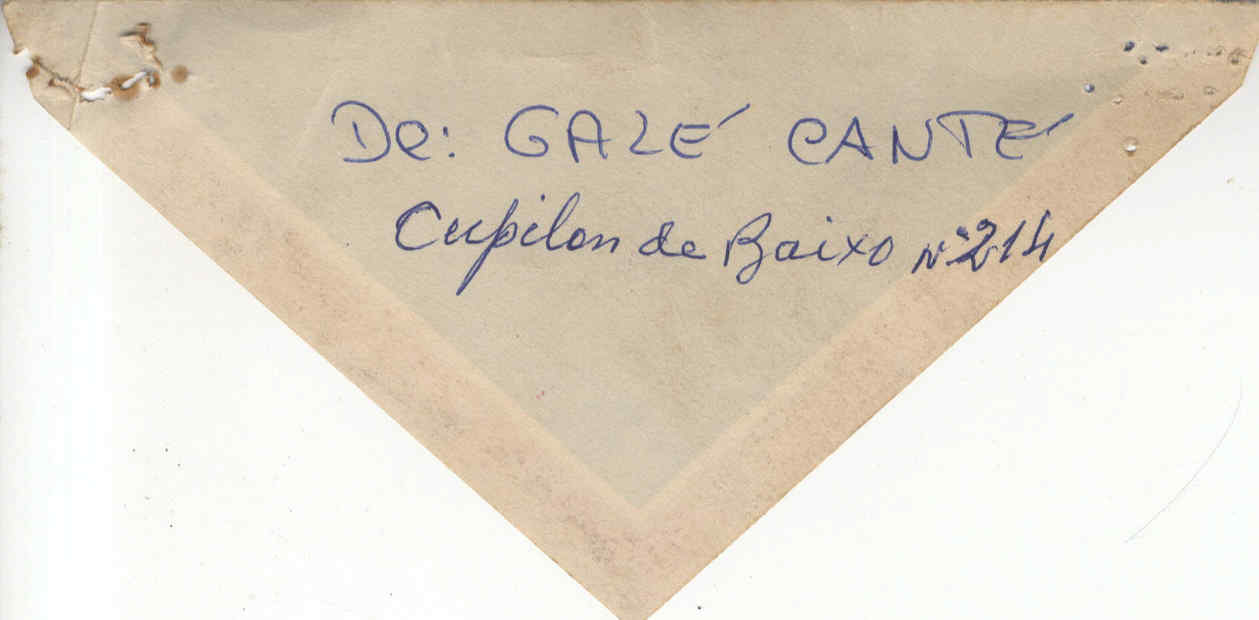 De: GALÉ CANTÉ
Cupilon de Baixo nº 214